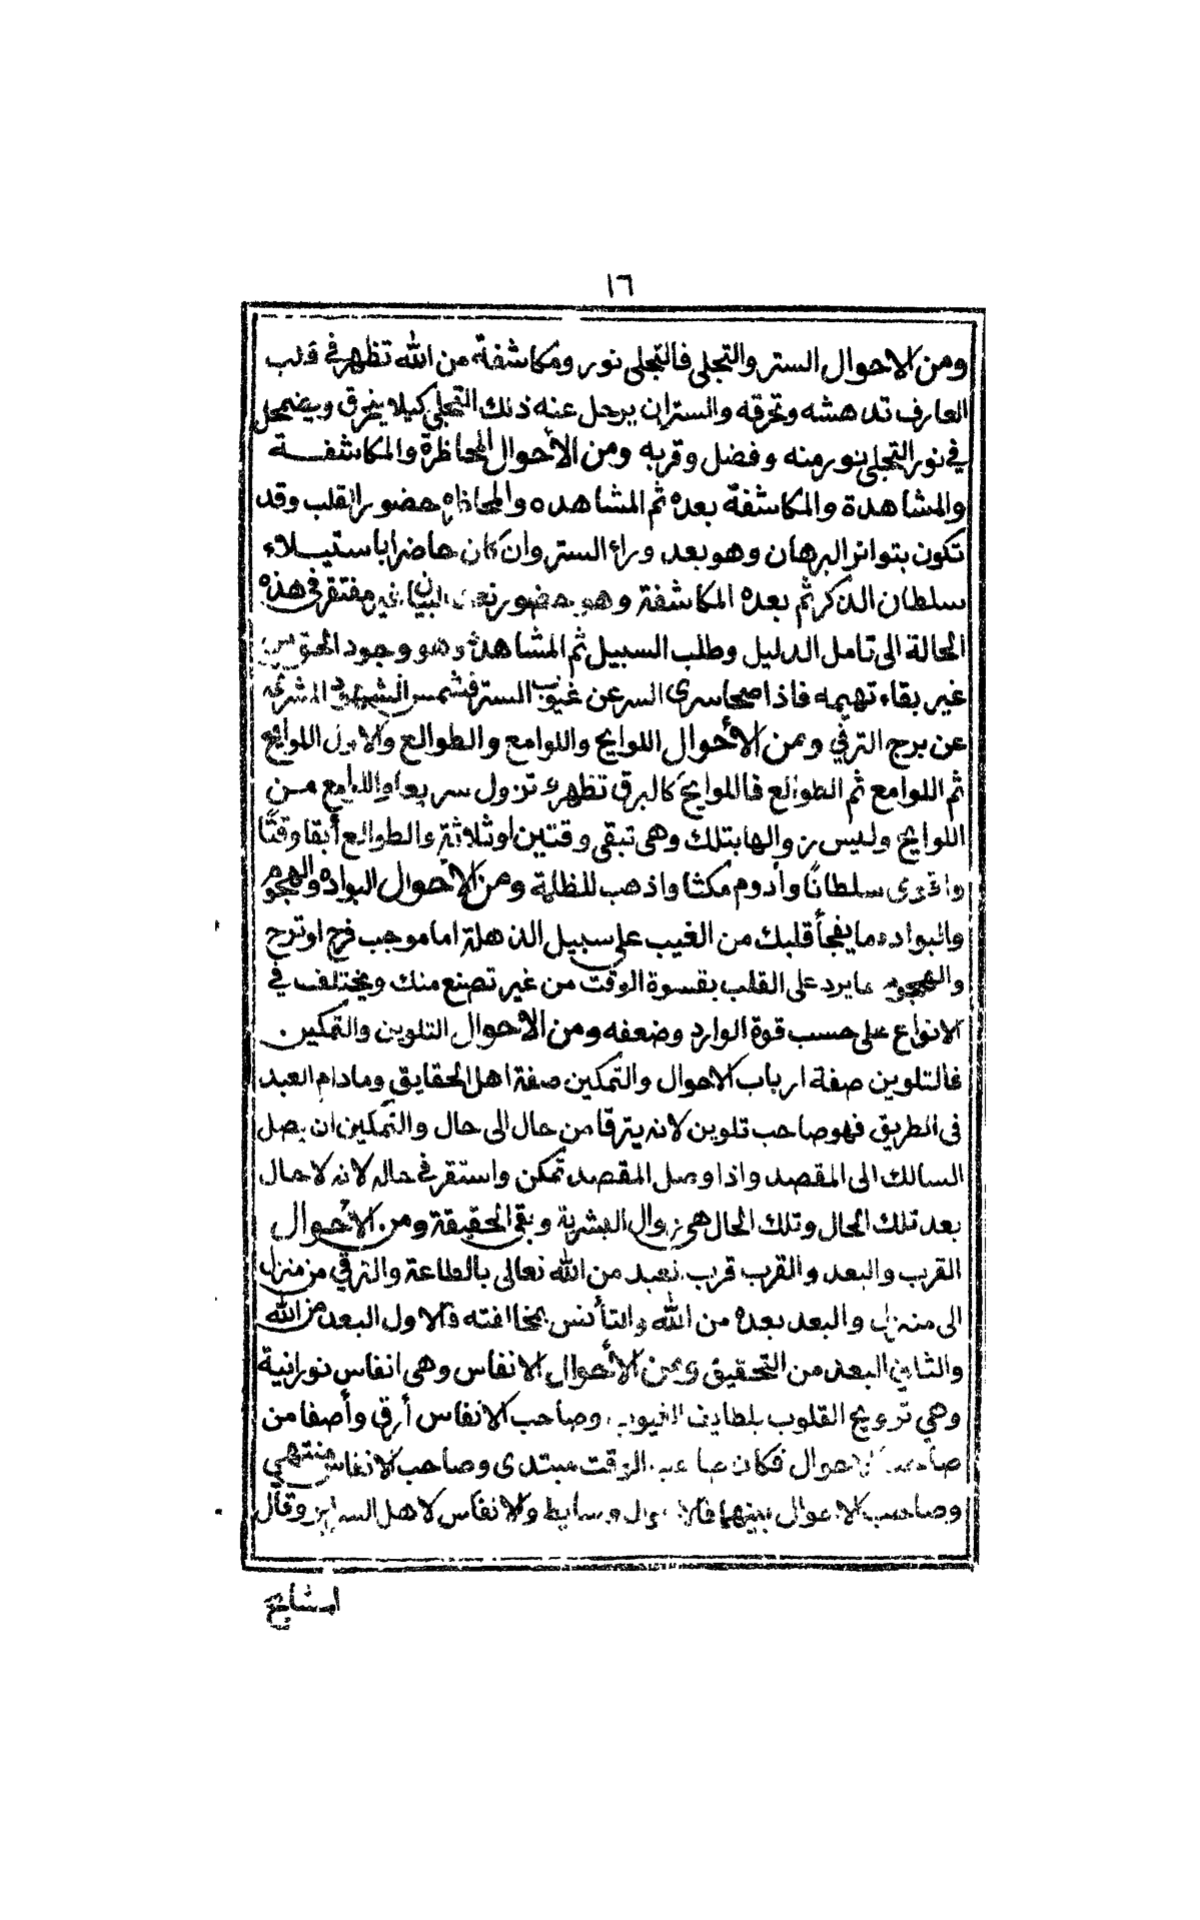 ١٦
ومن الاحوال الستر والتجلى فالتجلى نور ومكاشفة من الله تظهر فى قلب
العارف تدهشه وتحرقه والستر ان يرحل عنه ذلك التجلى كيلا يحرق ويضمحل
فى نور التجلى بنور منه وفضل وقربه ومن الأحوال المحاظرة والمكاشفة
والمشاهدة والمكاشفة بعده ثم المشاهده والمحاذاه حضور القلب وقد
تكون بتواتر البرهان وهو بعد وراء الستر وان كان حاضرا باستيلاء
سلطان الذكر ثم بعده المكاشفة وهو حضور البيان غير مفتقر فى هذه
الحالة الى تامل الدليل وطلب السبيل ثم المشاهدة وهو وجود الحق من
غير بقاء تهيمه فاذا صحا سرى السر عن غيوب الستر فشمس الشهود المشرقه
عن برج الترقي ومن الأحوال اللوايح واللوامع والطوالع والاول اللوايح
ثم اللوامع ثم الطوالع فاللوايح كالبرق تظهر وتزول سريعا واللوامع من
اللوايح وليس زوالها بتلك وهى تبقى وقتين او ثلاثة والطوالع أبقا وقتًا
واقوى سلطانًا وأدوم مكثا واذهب للظلمة ومن الاحوال البواده والهجوم
والبواده ما يفجأ قلبك من الغيب على سبيل الذهلة اما موجب فرح او ترح
والهجوم ما يرد على القلب بقسوة الوقت من غير تصنع منك ويختلف في
الانواع على حسب قوة الوارد وضعفه ومن الاحوال التلوين والتمكين.
فالتلوين صفة ارباب الاحوال والتمكين صفة اهل الحقايق ومادام العبد
فى الطريق فهو صاحب تلوين لانه يترقا من حال الى حال والتمكين ان يصل
السالك الى المقصد واذا وصل المقصد تمكن واستقر فى حاله لانه لا حال
بعد تلك الحال وتلك الحال هى زوال البشرية وبقى الحقيقة ومن الأحوال
القرب والبعد والقرب قرب العبد من الله تعالى بالطاعة والترقي من منزل
الى منزل والبعد بعده من الله والتأنس بمخالفته فالاول البعد من الله
والثاني البعد من التحقيق ومن الأحوال الانفاس وهى انفاس نورانية
وهي ترويح القلوب بلطايف الغيوب وصاحب الانفاس أرق وأصفا من
صاحب الاحوال فكان صاحب الوقت مبتدى وصاحب الانفاس منتهي
وصاحب الاحوال بينهما فالاحوال وسايط والانفاس لاهل السراير وقال
المشايخ